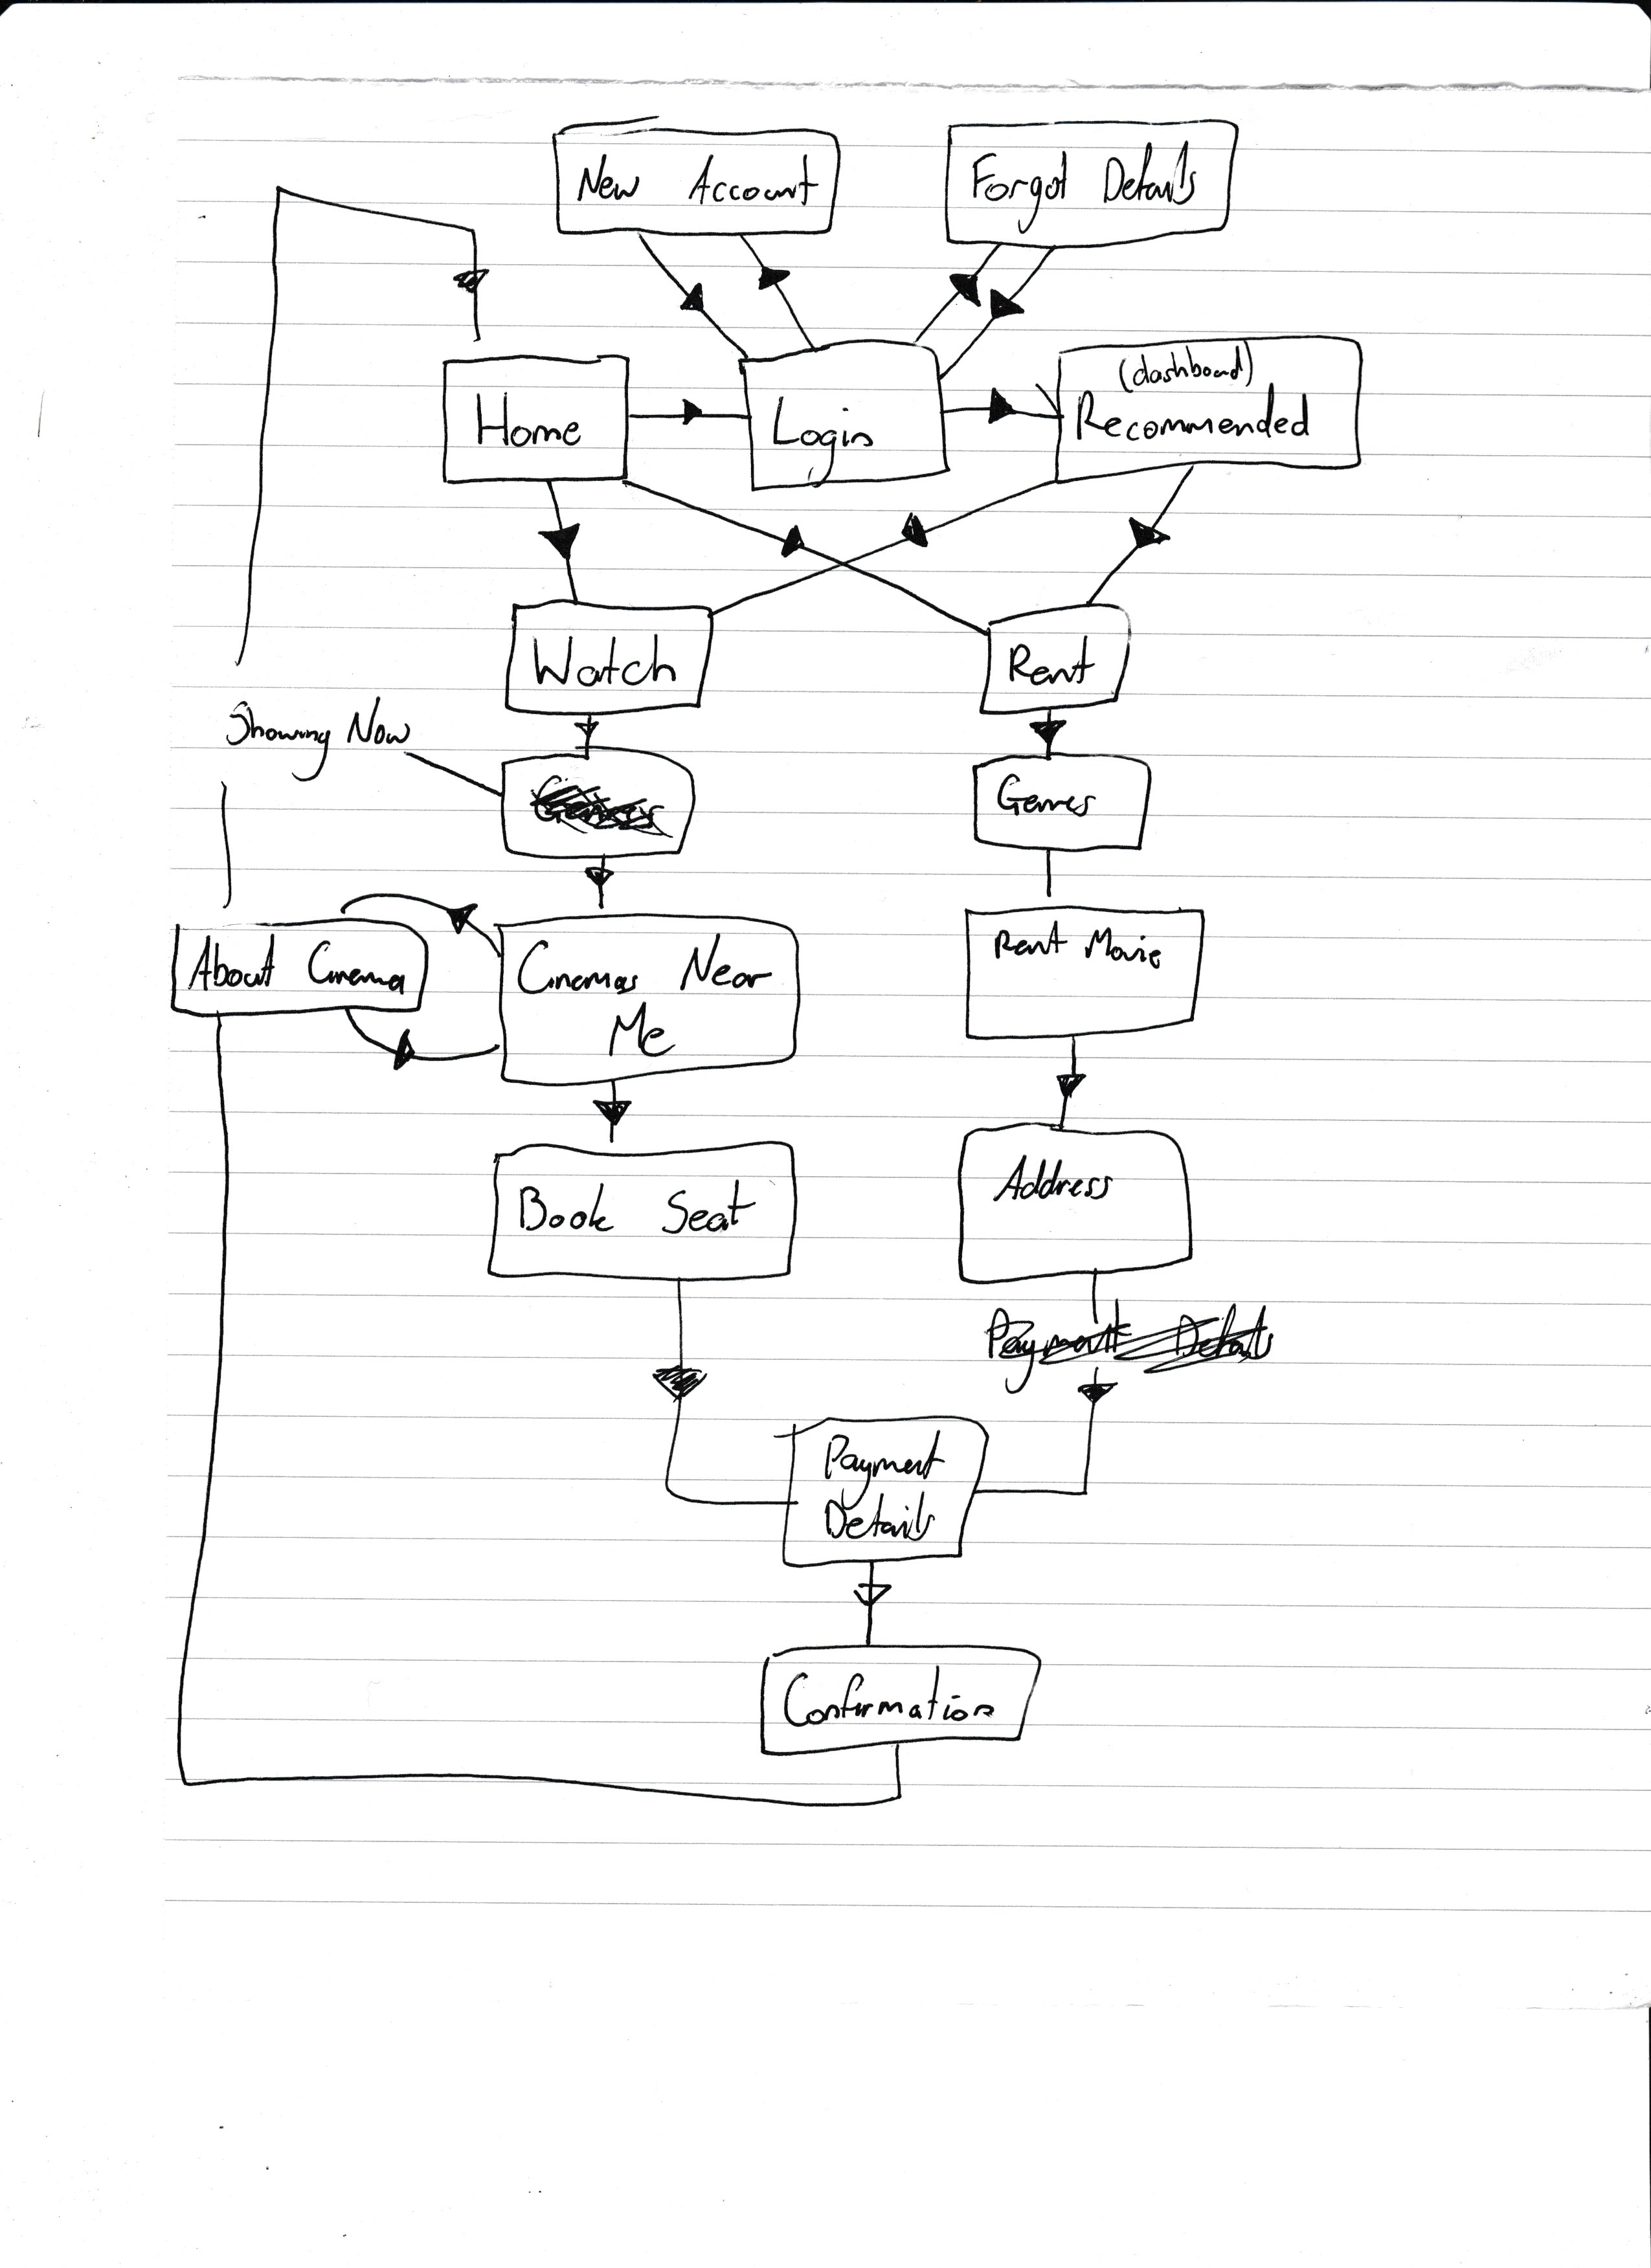 New Account
Forgot Details
(dashboard)
Home
Login
Recommended
Watch
Rent
Showing Now
About Cinema
Cinemas Near
Me
Rent Movie
Book Seat
Address
Payment Details
Payment
Details
Confirmation